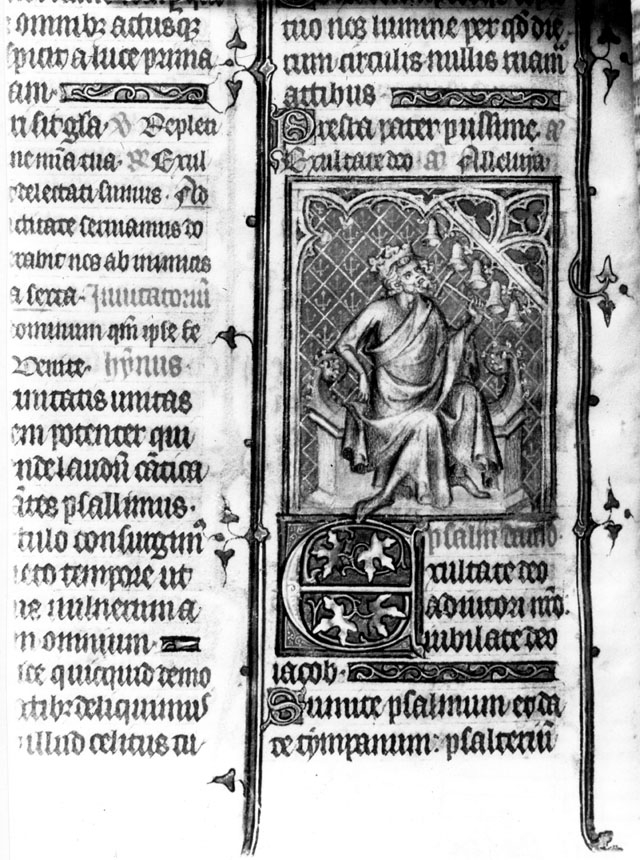 omnibꝫ actusqꝫ
spicit a luce prima
am
ti sit gla. ℣ Repleti
ne mīa tua. ℟ Exul
delectati sumus. Ad
ctitate seruiamus do
rabit nos ab inimicis
a sexta. Inuitatoriū
ominum qm̄ ipse fe
Venite. hȳnus
rinitatis unitas
em potenter qui
nde laudū cātica
ātes psallimus.
tulo consurgim᷒
eto tempore ut
us uulnerum a
n omnium
ice quicquid demo
tibꝫ deliquimus
illud celitus tu
tuo nos lumine per qd̄ die
rum circulis nullis ruam
actibus
Presta pater piissime. a
Exultate deo a Alleluja
psalm dauid.
Exultate deo
adiutori nr̄o.
iubilate deo
iacob.
Sumite psalmum et da
te tympanum: psalteriū